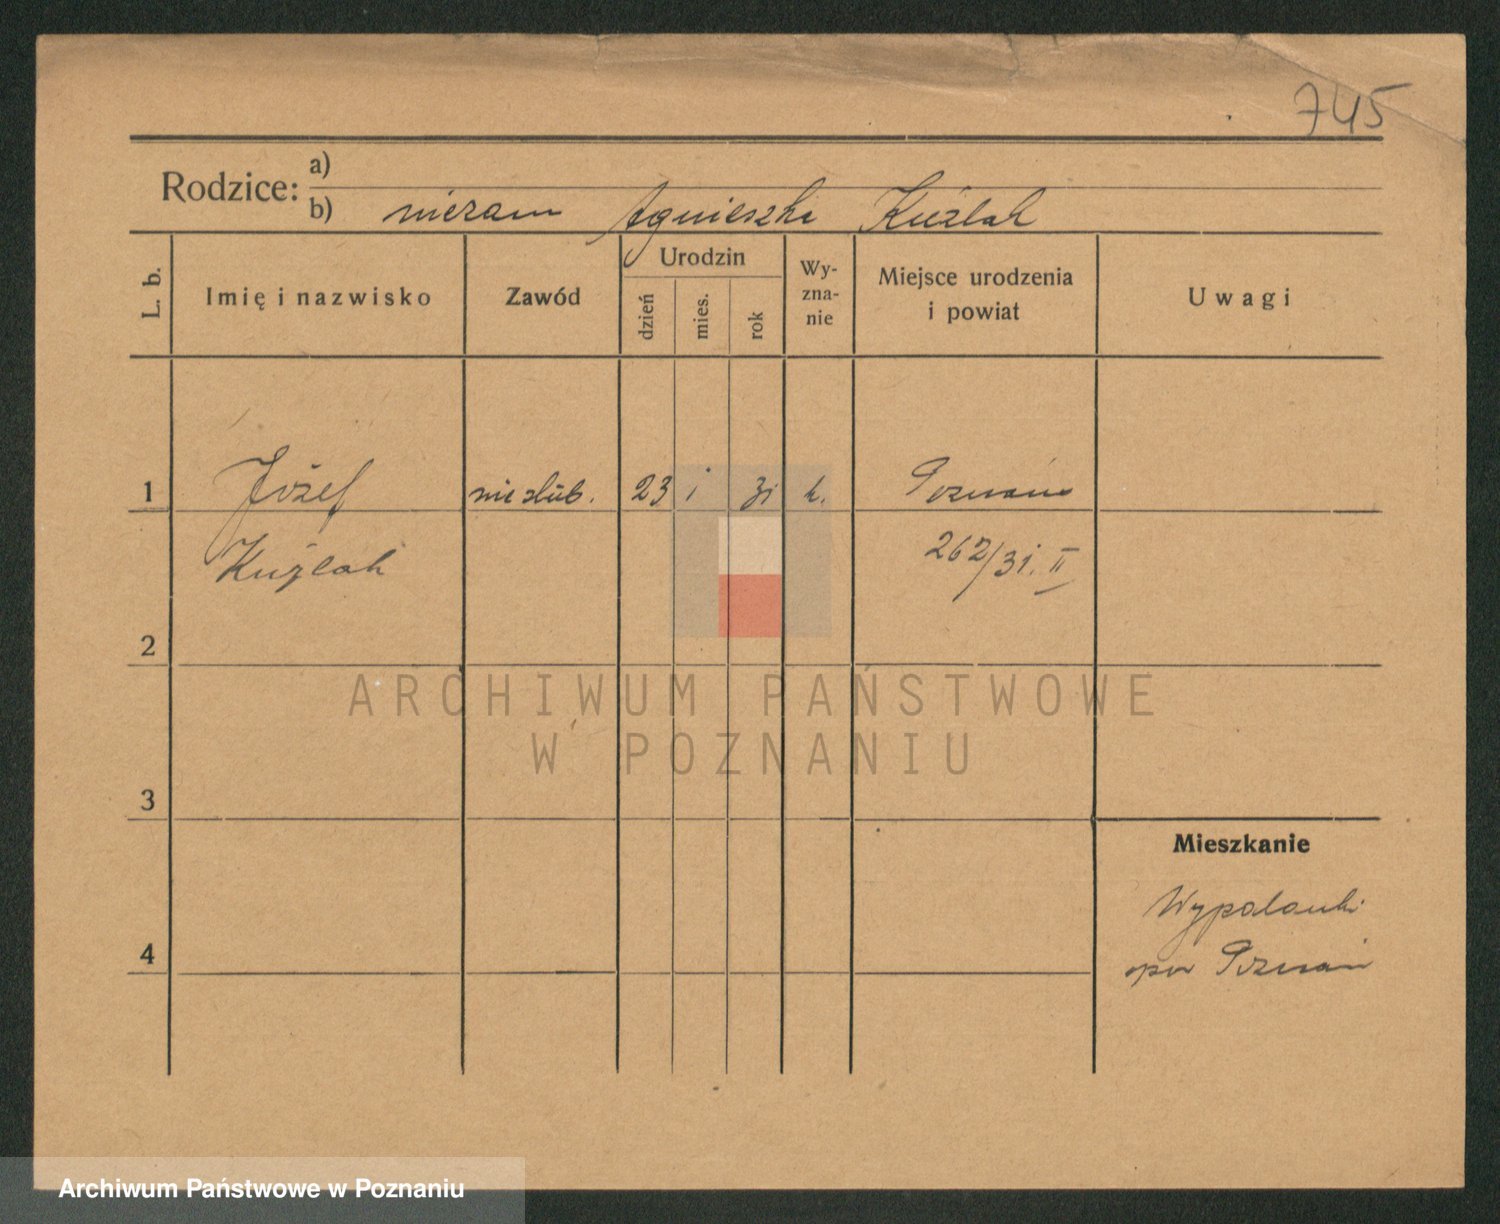 745
Rodzice: a)
b) niezam Agnieszki Kuźlak
L. b. Imię i nazwisko Zawód Urodzin dzień mies. rok Wyzna- nie Miejsce urodzenia i powiat Uwagi
1 Józef nieślub. 23 i 31 k. Poznań
Kuźlak 262/31. II
2
ARCHIWUM PAŃSTWOWE
W POZNANIU
3
Mieszkanie
Wypalanki
4
pow Poznań
Archiwum Państwowe w Poznaniu